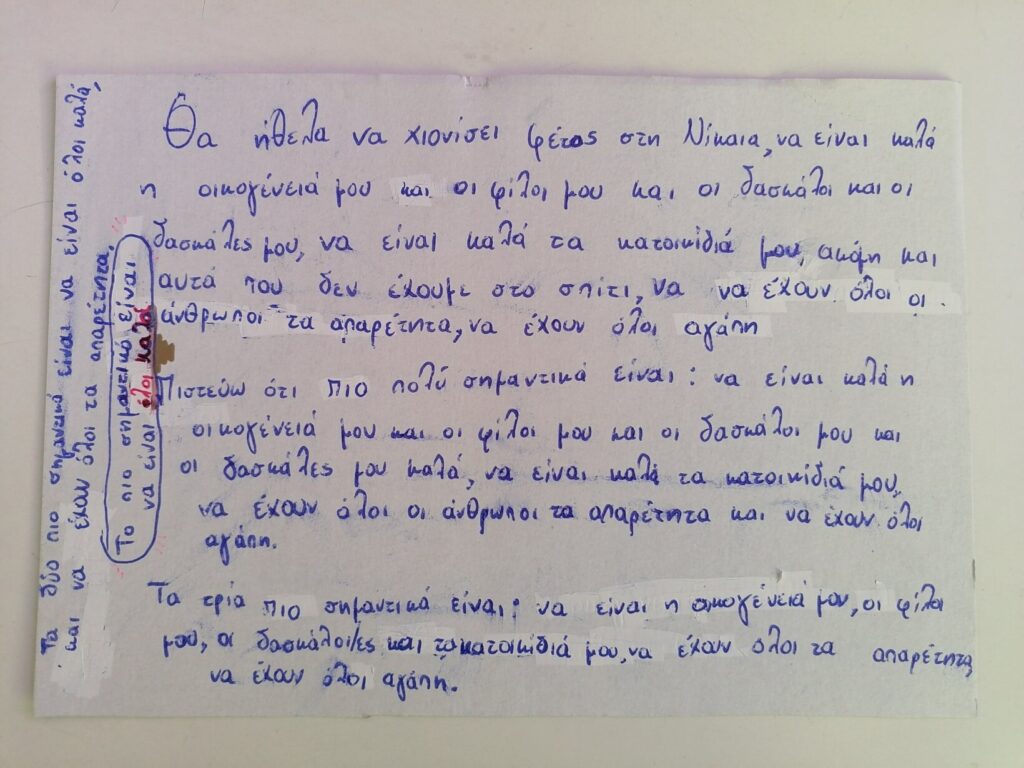 Θα ήθελα να χιονίσει φέτος στη Νίκαια, να είναι καλά
η οικογένειά μου και οι φίλοι μου και οι δασκάλοι και οι
δασκάλες μου, να είναι καλά τα κατοικίδιά μου, ακόμη και
αυτά που δεν έχουμε στο σπίτι, να να έχουν όλοι οι
άνθρωποι τα απαρέτητα, να έχουν όλοι αγάπη
Πιστεύω ότι πιο πολύ σημαντικά είναι: να είναι καλά η
οικογένειά μου και οι φίλοι μου και οι δασκάλοι μου και
οι δασκάλες μου καλά, να είναι καλά τα κατοικίδιά μου,
να έχουν όλοι οι άνθρωποι τα απαρέτητα και να έχουν όλοι
αγάπη.
Τα τρία πιο σημαντικά είναι: να είναι η οικογένειά μου, οι φίλοι
μου, οι δασκάλοι/ες και τα κατοικίδιά μου, να έχουν όλοι τα απαρέτητα,
να έχουν όλοι αγάπη.
Τα δύο πιο σημαντικά είναι να είναι όλοι καλά,
και να έχουν όλοι τα απαρέτητα.
Το πιο σημαντικό είναι
να είναι όλοι καλοί